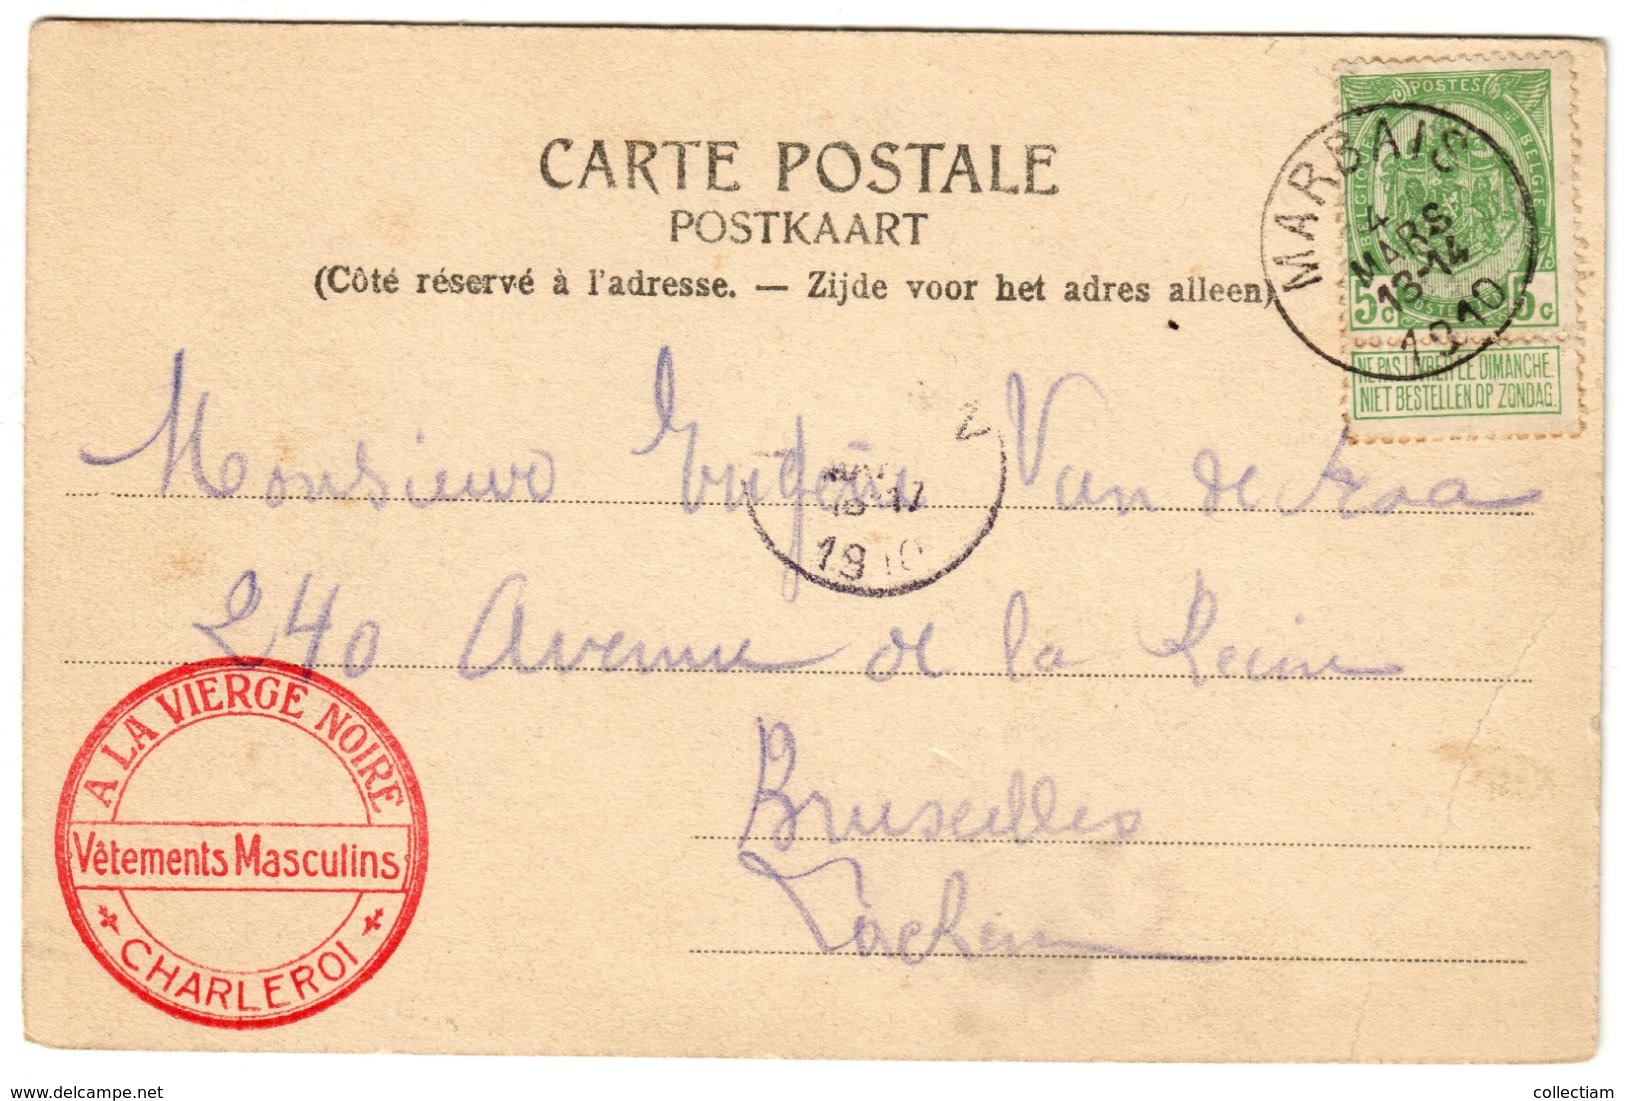 CARTE POSTALE
POSTKAART
(Côté réservé à l'adresse. — Zijde voor het adres alleen)
POSTES
BELGIQUE
BELGIË
5c 5c
NE PAS LIVRER LE DIMANCHE.
NIET BESTELLEN OP ZONDAG.
MARBAIS
4
MARS
13-14
1910
Monsieur Eugène Van de
17
1910
240 Avenue de la Reine
Bruxelles
Laeken
A LA VIERGE NOIRE
Vêtements Masculins
CHARLEROI
delcampe.net
collectiam